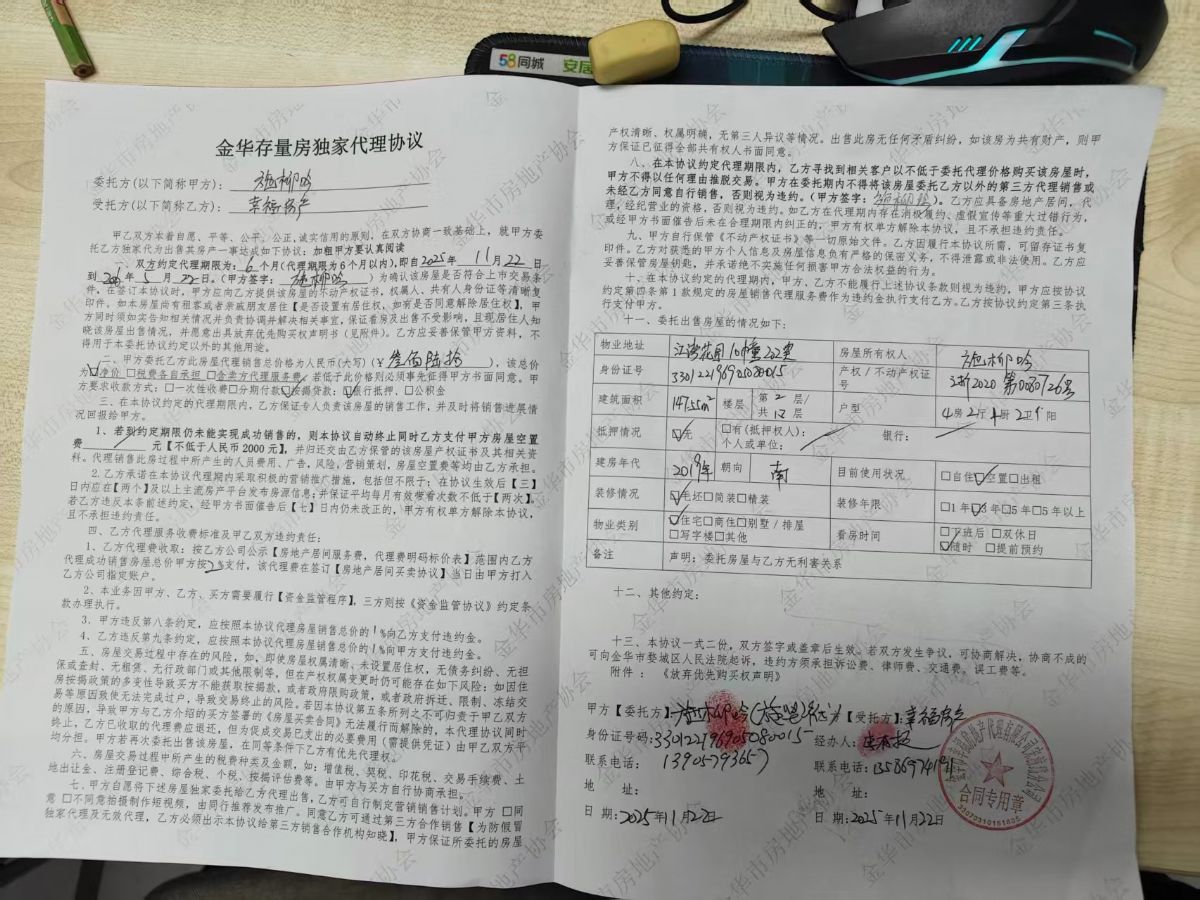 58同城 安居
金华存量房独家代理协议
委托方(以下简称甲方):施柳吟
受托方(以下简称乙方):幸福房产
甲乙双方本着自愿、平等、公平、公正,诚实信用的原则,在双方协商一致基础上,就甲方委
托乙方独家代为出售其房产一事达成如下协议:加粗甲方要认真阅读
一、双方约定代理期限为:6个月(代理期限为6个月以内),即自2025年11月22日
到2026年5月22日。(甲方签字:施柳吟)为确认该房屋是否符合上市交易条
件,在签订本协议时,甲方应向乙方提供该房屋的不动产权证书,权属人、共有人身份证等清晰复
印件。如本房屋尚有租赁或者亲戚朋友居住【是否设置有居住权,如有是否同意解除居住权】,甲
方同时须如实告知相关情况并负责协调并解决相关事宜,保证看房及出售不受影响,且现居住人知
晓该房屋出售情况,并愿意出具放弃优先购买权声明书(见附件)。乙方应妥善保管甲方资料,不
得用于本委托协议约定以外的其他用途。
二、甲方委托乙方此房屋代理销售总价格为人民币(大写)(¥叁佰陆拾),该总价
为☑净价 □税费各自承担 □含卖方代理服务费,若低于此价格则必须事先征得甲方书面同意。甲
方要求收款方式:□一次性收费□分期付款☑按揭贷款:☑银行抵押、□公积金
三、在本协议约定的代理期限内,乙方保证专人负责该房屋的销售工作,并及时将销售进展情
况回报给甲方。
1、若到约定期限仍未能实现成功销售的,则本协议自动终止同时乙方支付甲方房屋空置
费/元【不低于人民币2000元】,并归还交由乙方保管的该房屋产权证书及其相关资
料。代理销售此房过程中所产生的人员费用、广告,风险,营销策划,房屋空置费等均由乙方承担。
2、乙方承诺在本协议代理期内采取积极的营销推广措施,包括但不限于:在协议生效后【三】
日内应在【两个】及以上主流房产平台发布房源信息;并保证平均每月有效带看次数不低于【两次】。
若乙方违反本条前述约定,经甲方书面催告后【七】日内仍未改正的,甲方有权单方解除本协议,
且不承担违约责任。
四、乙方代理服务收费标准及甲乙双方违约责任:
1、乙方代理费收取:按乙方公司公示【房地产居间服务费,代理费明码标价表】范围内乙方
代理成功销售房屋总价甲方按2%支付,该代理费在签订【房地产居间买卖协议】当日由甲方打入
乙方公司指定账户。
2、本业务因甲方、乙方、买方需要履行【资金监管程序】,三方则按《资金监管协议》约定条
款办理执行。
3、甲方违反第八条约定,应按照本协议代理房屋销售总价的1%向乙方支付违约金。
4、乙方违反第九条约定,应按照本协议代理房屋销售总价的1%向甲方支付违约金。
五、房屋交易过程中存在的风险,如,即使房屋权属清晰、未设置居住权,无债务纠纷、无担
保或查封、无租赁、无行政部门或其他限制等,但在产权权属变更时仍可能存在如下风险:如因住
房按揭政策的多变性导致买方不能获取按揭款,或者政府限购政策,或者政府拆迁、限制、冻结交
易等原因致使无法完成过户,导致交易终止的风险。若因本协议第五条所列之不可归责于甲乙双方
的原因,导致甲方与乙方介绍的买方签署的《房屋买卖合同》无法履行而解除的,本代理协议同时
终止,乙方已收取的代理费应退还,但为促成交易已支出的必要费用(需提供凭证)由甲乙双方平
均分担。甲方若再次委托出售该房屋,在同等条件下乙方有优先代理权。
六、房屋交易过程中所产生的税费种类及金额,如:增值税、契税、印花税、交易手续费、土
地出让金、注册登记费、综合税、个税、按揭评估费等。由甲方与买方自行协商承担。
七、甲方自愿将下述房屋独家委托给乙方代理出售,乙方可自行制定营销销售计划。甲方 □同
意 □不同意拍摄制作短视频,由同行推荐发布推广。同意乙方可通过第三方合作销售【为防假冒
独家代理及无效代理,乙方必须出示本协议给第三方销售合作机构知晓】,甲方保证所委托的房屋
产权清晰、权属明确,无第三人异议等情况。出售此房无任何矛盾纠纷,如该房为共有财产,则甲
方保证已征得全部共有权人书面同意。
八、在本协议约定代理期限内,乙方寻找到相关客户以不低于委托代理价格购买该房屋时,
甲方不得以任何理由推脱交易。甲方在委托期内不得将该房屋委托乙方以外的第三方代理销售或
未经乙方同意自行销售,否则视为违约。(甲方签字:施柳吟)。乙方应具备房地产居间,代
理,经纪营业的资格,否则视为违约。如乙方在代理期内存在消极履约、虚假宣传等重大过错行为,
或经甲方书面催告后未在合理期限内纠正的,甲方有权单方解除本协议,且不承担违约责任。
九、甲方自行保管《不动产权证书》等一切原始文件。乙方因履行本协议所需,可留存证书复
印件。乙方对获悉的甲方个人信息及房屋信息负有严格的保密义务,不得泄露或非法使用。乙方应
妥善保管房屋钥匙,并承诺绝不实施任何损害甲方合法权益的行为。
十、在本协议约定的代理期内,甲方、乙方不能履行上述协议条款则视为违约,甲方应按协议
约定第四条第1款规定的房屋销售代理服务费作为违约金执行支付乙方。乙方按协议约定第三条执
行支付甲方。
十一、委托出售房屋的情况如下:
物业地址 江湾花园10幢202室 房屋所有权人 施柳吟
身份证号 330122196905080015 产权/不动产权证号 浙2020 第0080726号
建筑面积 147.55m² 楼层 第2层/共12层 户型 4房2厅1厨2卫1阳
抵押情况 ☑无 □有(抵押权人): 个人或单位: 银行:
建房年代 2019年 朝向 南 目前使用状况 □自住☑空置□出租
装修情况 ☑毛坯□简装□精装 装修年限 □1年☑3年□5年□5年以上
物业类别 ☑住宅□商住□别墅/排屋 □写字楼□其他 看房时间 □下班后 □双休日 ☑随时 □提前预约
备注 声明:委托房屋与乙方无利害关系
十二、其他约定:
十三、本协议一式二份,双方签字或盖章后生效。若双方发生争议,可协商解决,协商不成的
可向金华市婺城区人民法院起诉,违约方须承担诉讼费、律师费、交通费、误工费等。
附件:《放弃优先购买权声明》
甲方【委托方】:施柳吟 乙方【受托方】:幸福房产
身份证号码:330122196905080015 经办人:
联系电话:13905793657 联系电话:
地 址: 地 址:
日 期:2025年11月22日 日 期:2025年11月22日
合同专用章
金华市房地产协会